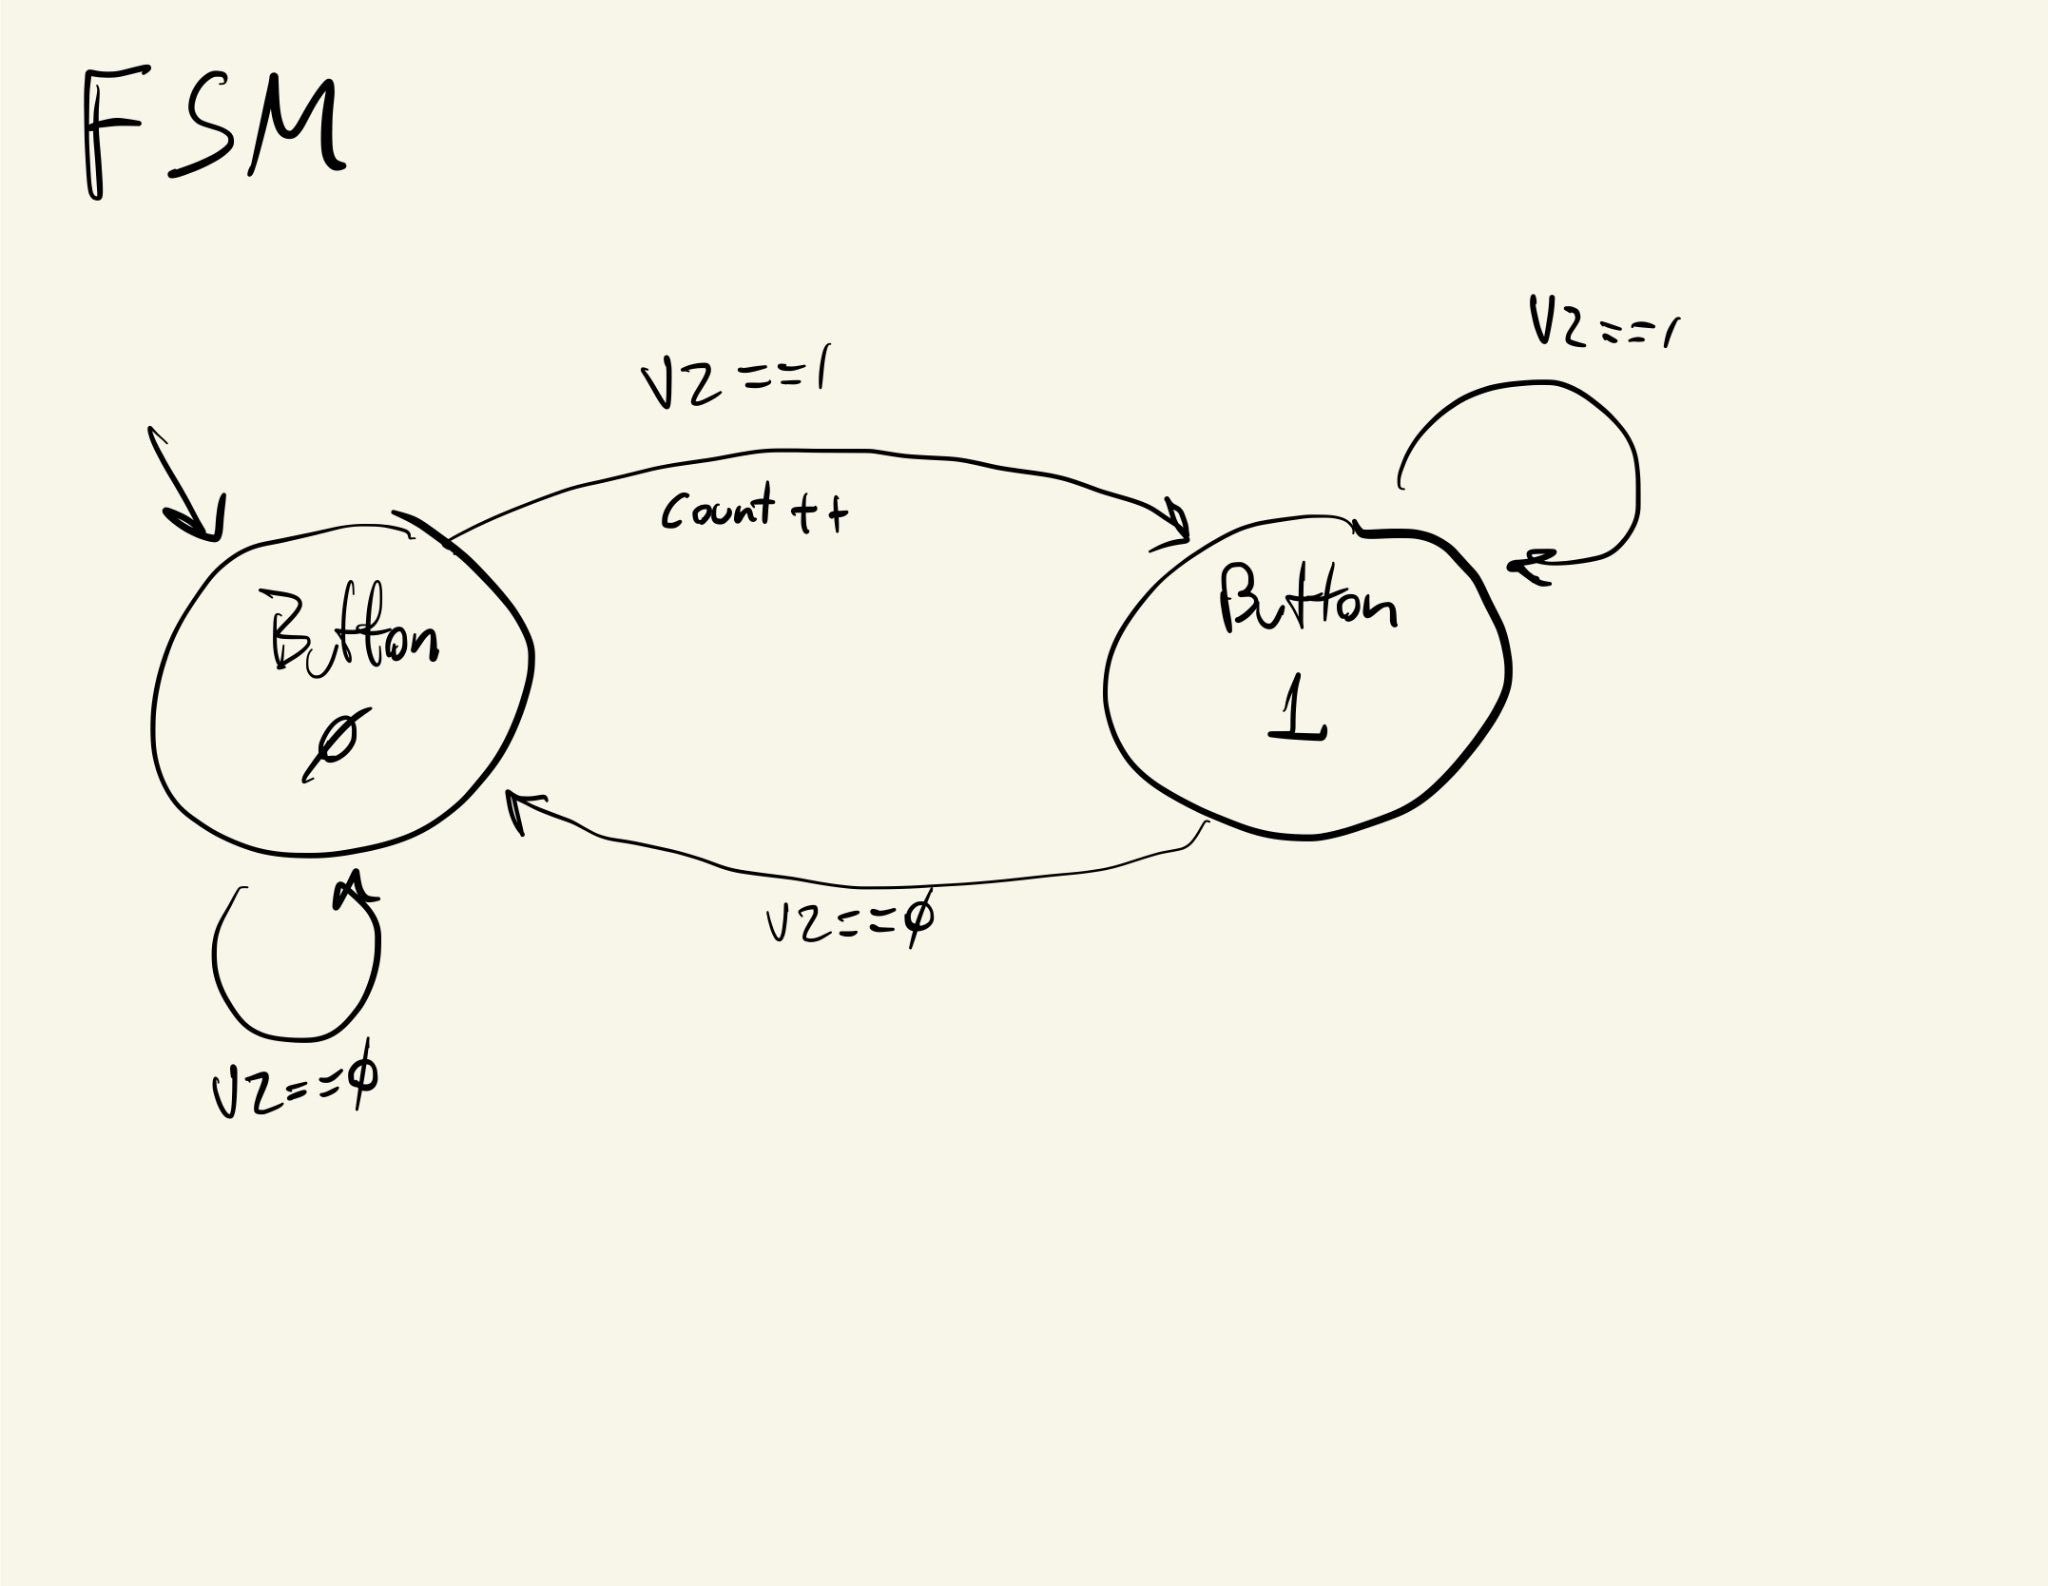 FSM
V2==1
V2==1
Count++
Button
0
Button
1
V2==0
V2==0